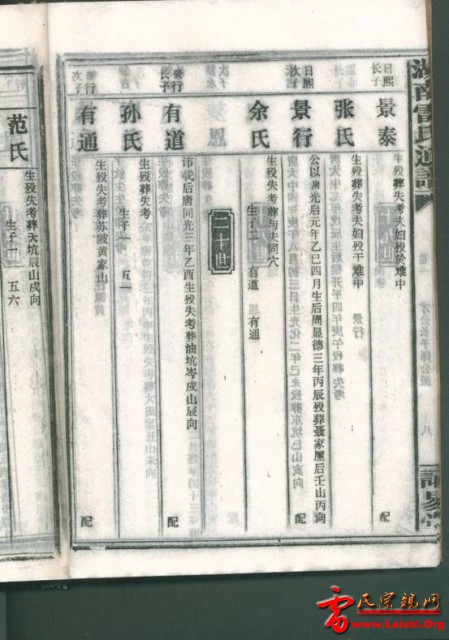 湖南雷氏通譜
日熙
长子
景泰
生殁葬失考夫妇殁於难中
配
张氏
生殁葬失考夫妇殁于难中
日熙
次子
景行
公以唐光启元年乙巳四月生后周显德三年丙辰殁葬聂家屋后壬山丙向
配
余氏
生殁失考葬与夫同穴
生子二
有道
有通
二十世
景行
长子
有道
讳我后唐同光三年乙酉生殁失考葬油坑岑戌山辰向
配
孙氏
生殁葬失考
生子一
五一
景行
次子
有通
生殁失考葬苏陂黄家山
配
范氏
生殁失考葬大坑辰山戌向
生子二
五六
雷氏宗親网
www.Leishi.Org